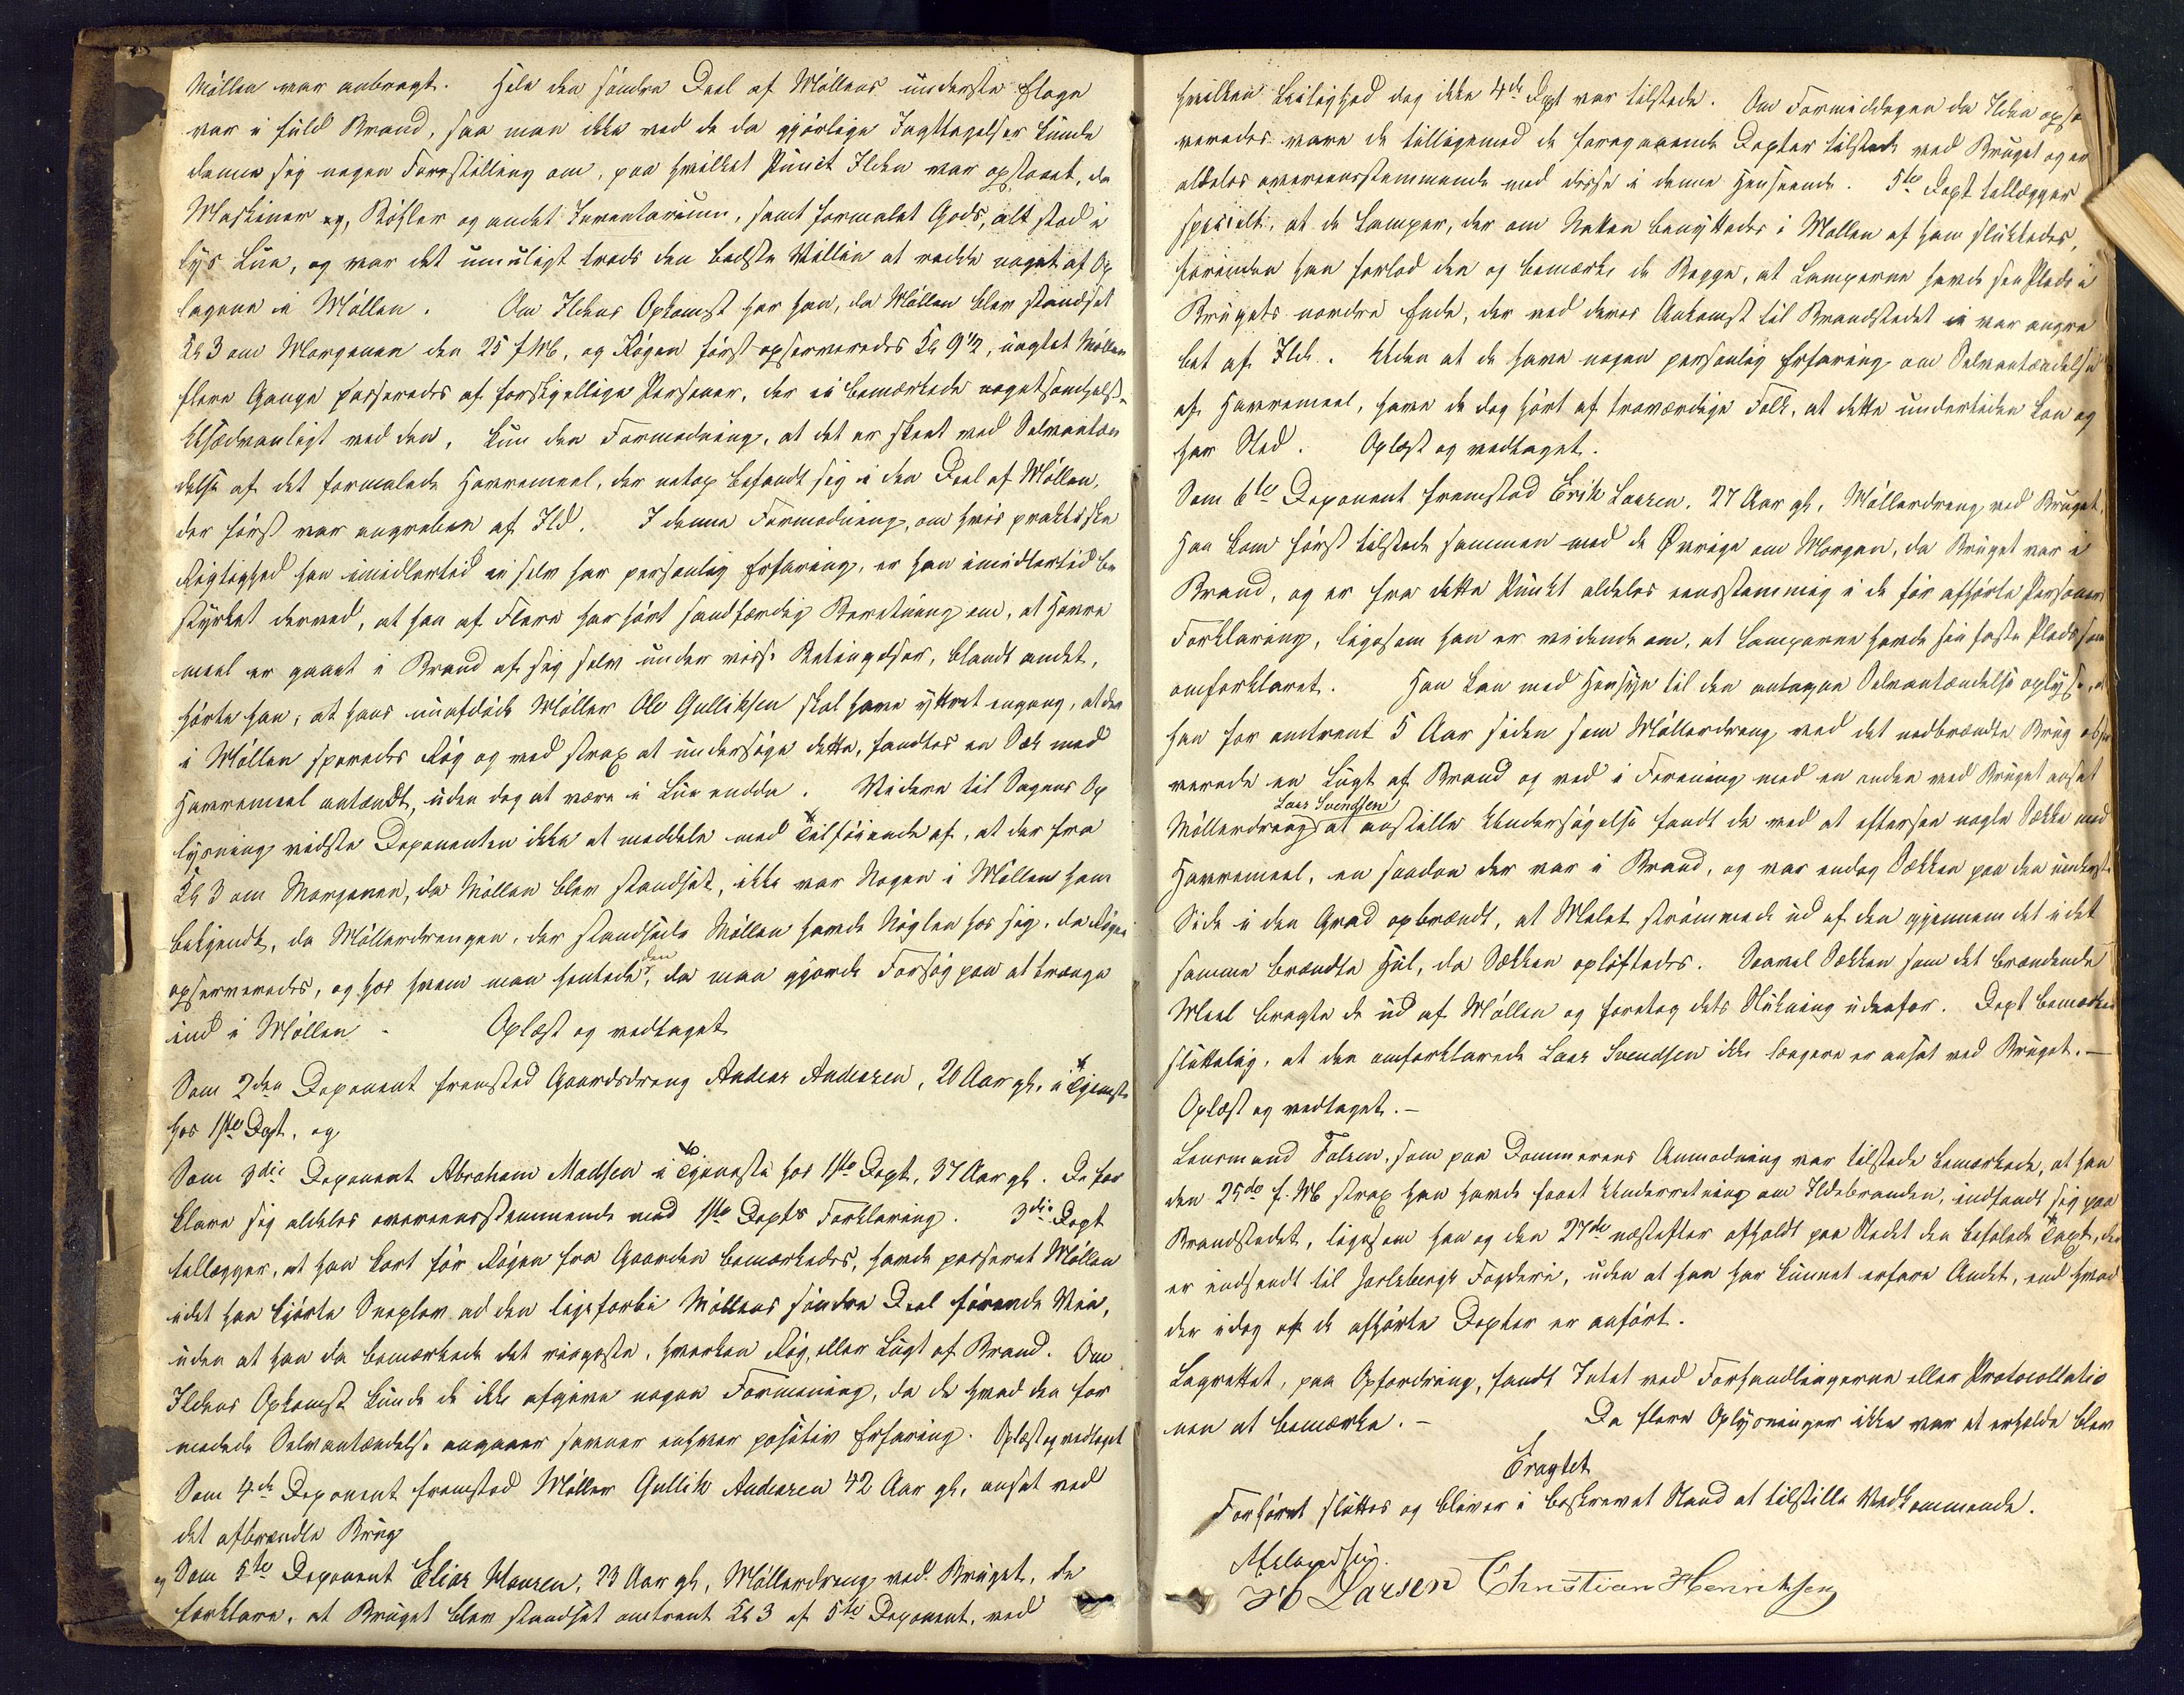 Møllen var anbragt. Hele den søndre Deel af Møllens underste Etage
var i fuld Brand, saa man ikke ved de da gjørlige Iagttagelser kunde
danne sig nogen Forestilling om, paa hvilket Punct Ilden var opstaaet, da
Maskiner og, Bøsler og andet Inventarium, samt formalet Gods, alt stod i
lys Lue, og var det umuligt trods den bedste Villie at redde noget af Op
lagene i Møllen. Om Ildens Opkomst har han, da Møllen blev standset
Kl 3 om Morgenen den 25 f. M., og Røgen først observeredes Kl 9 1/2, uagtet Møllen
flere Gange passeredes af forskjellige Personer, der ei bemærkede nogetsomhelst
Usædvanligt ved den, kun den Formodning, at det er skeet ved Selvantæn
delse af det formalede Havremeel, der netop befandt sig i den Deel af Møllen,
der først var angreben af Ild. I denne Formodning, om hvis praktiske
Rigtighed han imidlertid ei selv har personlig Erfaring, er han imidlertid be
styrket derved, at han af Flere har hørt sandfærdig Beretning om, at Havre
meel er gaaet i Brand af sig selv under visse Betingelser, blandt andet,
hørte han, at hans nuafdøde Møller Ole Gulliksen skal have yttret engang, at der
i Møllen sporedes Røg og ved strax at undersøge dette, fandtes en Sæk med
Havremeel antændt, uden dog at være i Lue endda. Videre til Sagens Op
lysning vidste Deponenten ikke at meddele med Tilføiende af, at der fra
Kl 3 om Morgenen, da Møllen blev standset, ikke var Nogen i Møllen ham
bekjendt, da Møllerdrengen, der standsede Møllen havde Nøglen hos sig, da Røgen
observeredes, og hos hvem man hentede den, da man gjorde Forsøg paa at trænge
ind i Møllen. Oplæst og vedtaget
Som 2den Deponent fremstod Gaardsdreng Andeas Andersen, 20 Aar gl. i Tjeneste
hos 1ste Dpt, og
Som 3die Deponent Abraham Madsen i Tjeneste hos 1ste Dept, 37 Aar gl. De for
klare sig aldeles overeensstemmende med 1ste Depts Forklaring. 3die Dept
tillægger, at han kort før Røgen fra Gaarden bemærkedes, havde passeret Møllen
idet han kjørte Sneplov ad den ligeforbi Møllens søndre Deel førende Vei,
uden at han da bemærkede det ringeste, hverken Røg, eller Lugt af Brand. Om
Ildens Opkomst kunde de ikke afgive nogen Formening, da de hvad den for
modede Selvantændelse angaaer savner enhver positiv Erfaring. Oplæst og vedtaget
Som 4de Deponent fremstod Møller Gullik Andersen 42 Aar gl, ansat ved
det afbrændte Brug
og Som 5te Deponent Elias Hansen, 23 Aar gl, Møllerdreng ved Bruget, de
forklare, at Bruget blev standset omtrent Kl 3 af 5te Deponent, ved
hvilken Leilighed dog ikke 4de Dept var tilstede. Om Formiddagen da Ilden obser
veredes vare de tilligemed de foregaaende Depter tilstede ved Bruget og er
aldeles overeensstemmende med disse i denne Henseende. 5te Dept tillægger
specielt, at de Lamper, der om Natten benyttedes i Møllen af ham slukkedes,
forinden han forlod den og bemærke de Begge, at Lamperne havde sin Plads i
Brugets nordre Ende, der ved deres Ankomst til Brandstedet ei var angre
bet af Ild. Uden at de have nogen personlig Erfaring om Selvantændelse
af Havremeel, have de dog hørt af troværdige Folk, at dette undertiden kan og
har Sted. Oplæst og vedtaget.
Som 6te Deponent fremstod Erik Larsen, 27 Aar gl, Møllerdreng ved Bruget,
Han kom først tilstede sammen med de Øvrige om Morgen, da Bruget var i
Brand, og er fra dette Punkt aldeles eensstemmig i de før afhørte Personers
Forklaring, ligesom han er vidende om, at Lamperne havde sin faste Plads som
omforklaret. Han kan med Hensyn til den antagne Selvantændelse oplyse, at
han for omtrent 5 Aar siden som Møllerdreng ved det nedbrændte Brug obser
verede en Lugt af Brand og ved i Forening med en anden ved Bruget ansat
Møllerdreng Lars Svendsen at anstille Undersøgelse fandt de ved at eftersee nogle Sække med
Havremeel, en saadan der var i Brand, og var endog Sækken paa den underste
Side i den Grad opbrændt, at Melet strømmede ud af den gjennem det i det
samme brændte Hul, da Sækken opløftedes. Saavel Sækken som det brændende
Meel bragte de ud af Møllen og foretog dets Slukning udenfor. Dept bemærker
sluttelig, at den omforklarede Lars Svendsen ikke længere er ansat ved Bruget.—
Oplæst og vedtaget.—
Lensmand Falsen, som paa Dommerens Anmodning var tilstede bemærkede, at han
den 25de f. M. strax han havde faaet Underretning om Ildebranden, indfandt sig paa
Brandstedet, ligesom han og den 27de næstefter afholdt paa Stedet den befalede Taxt, der
er indsendt til Jarlsbergs Fogderi, uden at han har kunnet erfare Andet, end hvad
der idag af de afhørte Depter er anført.
Lagrettet, paa Opfordring, fandt Intet ved Forhandlingerne eller Protocollatio
nen at bemærke.— Da flere Oplysninger ikke var at erholde blev
Eragtet
Forhøret sluttes og bliver i beskrevet Stand at tilstille Vedkommende.
H Larsen Christian Henriksen